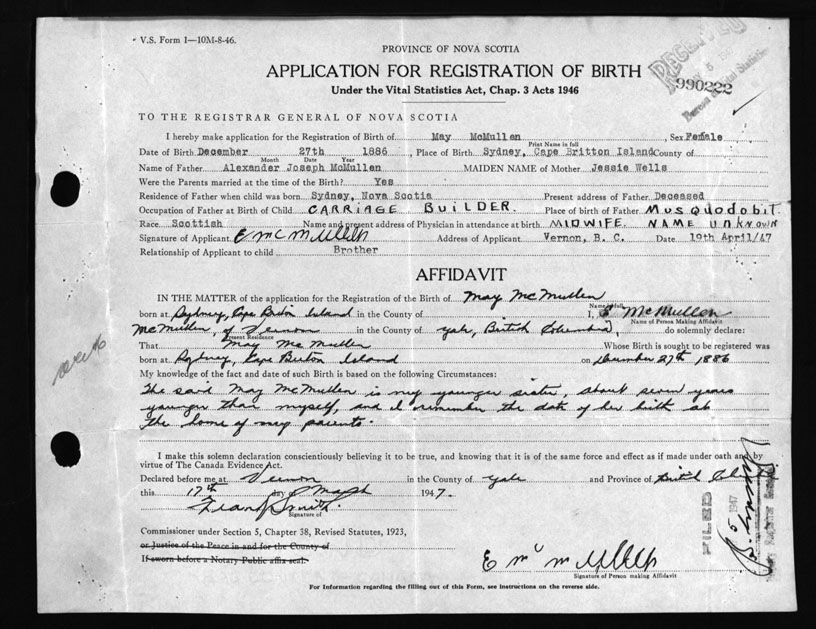 V.S. Form 1—10M-8-46.
PROVINCE OF NOVA SCOTIA
APPLICATION FOR REGISTRATION OF BIRTH
Under the Vital Statistics Act, Chap. 3 Acts 1946
990222
TO THE REGISTRAR GENERAL OF NOVA SCOTIA
I hereby make application for the Registration of Birth of May McMullen, Sex Female
Print Name in full
Date of Birth December 27th 1886, Place of Birth Sydney, Cape Britton Island County of
Month Date Year
Name of Father Alexander Joseph McMullen MAIDEN NAME of Mother Jessie Wells
Were the Parents married at the time of the Birth? Yes
Residence of Father when child was born Sydney, Nova Scotia Present address of Father Deceased
Occupation of Father at Birth of Child CARRIAGE BUILDER. Place of birth of Father MUSQUODOBIT.
Race Scottish Name and present address of Physician in attendance at birth MIDWIFE. NAME UNKNOWN
Signature of Applicant E McMullen Address of Applicant Vernon, B. C. Date 19th April/47
Relationship of Applicant to child Brother
AFFIDAVIT
IN THE MATTER of the application for the Registration of the Birth of May McMullen
Name in full
born at Sydney, Cape Breton Island in the County of I, E McMullen
Name of Person Making Affidavit
McMullen, of Vernon in the County of Yale, British Columbia, do solemnly declare:
Present Residence
That May McMullen Whose Birth is sought to be registered was
born at Sydney, Cape Breton Island on December 27th 1886
My knowledge of the fact and date of such Birth is based on the following Circumstances:
The said May McMullen is my younger sister, about seven years
younger than myself, and I remember the date of her birth at
the home of my parents.
I make this solemn declaration conscientiously believing it to be true, and knowing that it is of the same force and effect as if made under oath and by
virtue of The Canada Evidence Act.
Declared before me at Vernon in the County of Yale and Province of British
this 17th day of 1947.
Smith.
Signature of
Commissioner under Section 5, Chapter 38, Revised Statutes, 1923,
or Justice of the Peace in and for the County of
If sworn before a Notary Public affix seal.
E McMullen
Signature of Person making Affidavit
FILED
5 1947
For Information regarding the filling out of this Form, see instructions on the reverse side.